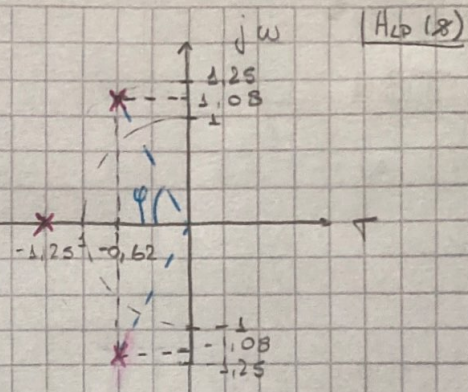 jω
|H_LP(s)
1,25
1,08
1
φ
σ
-1,25
-1
-0,62
-1
-1,08
-1,25